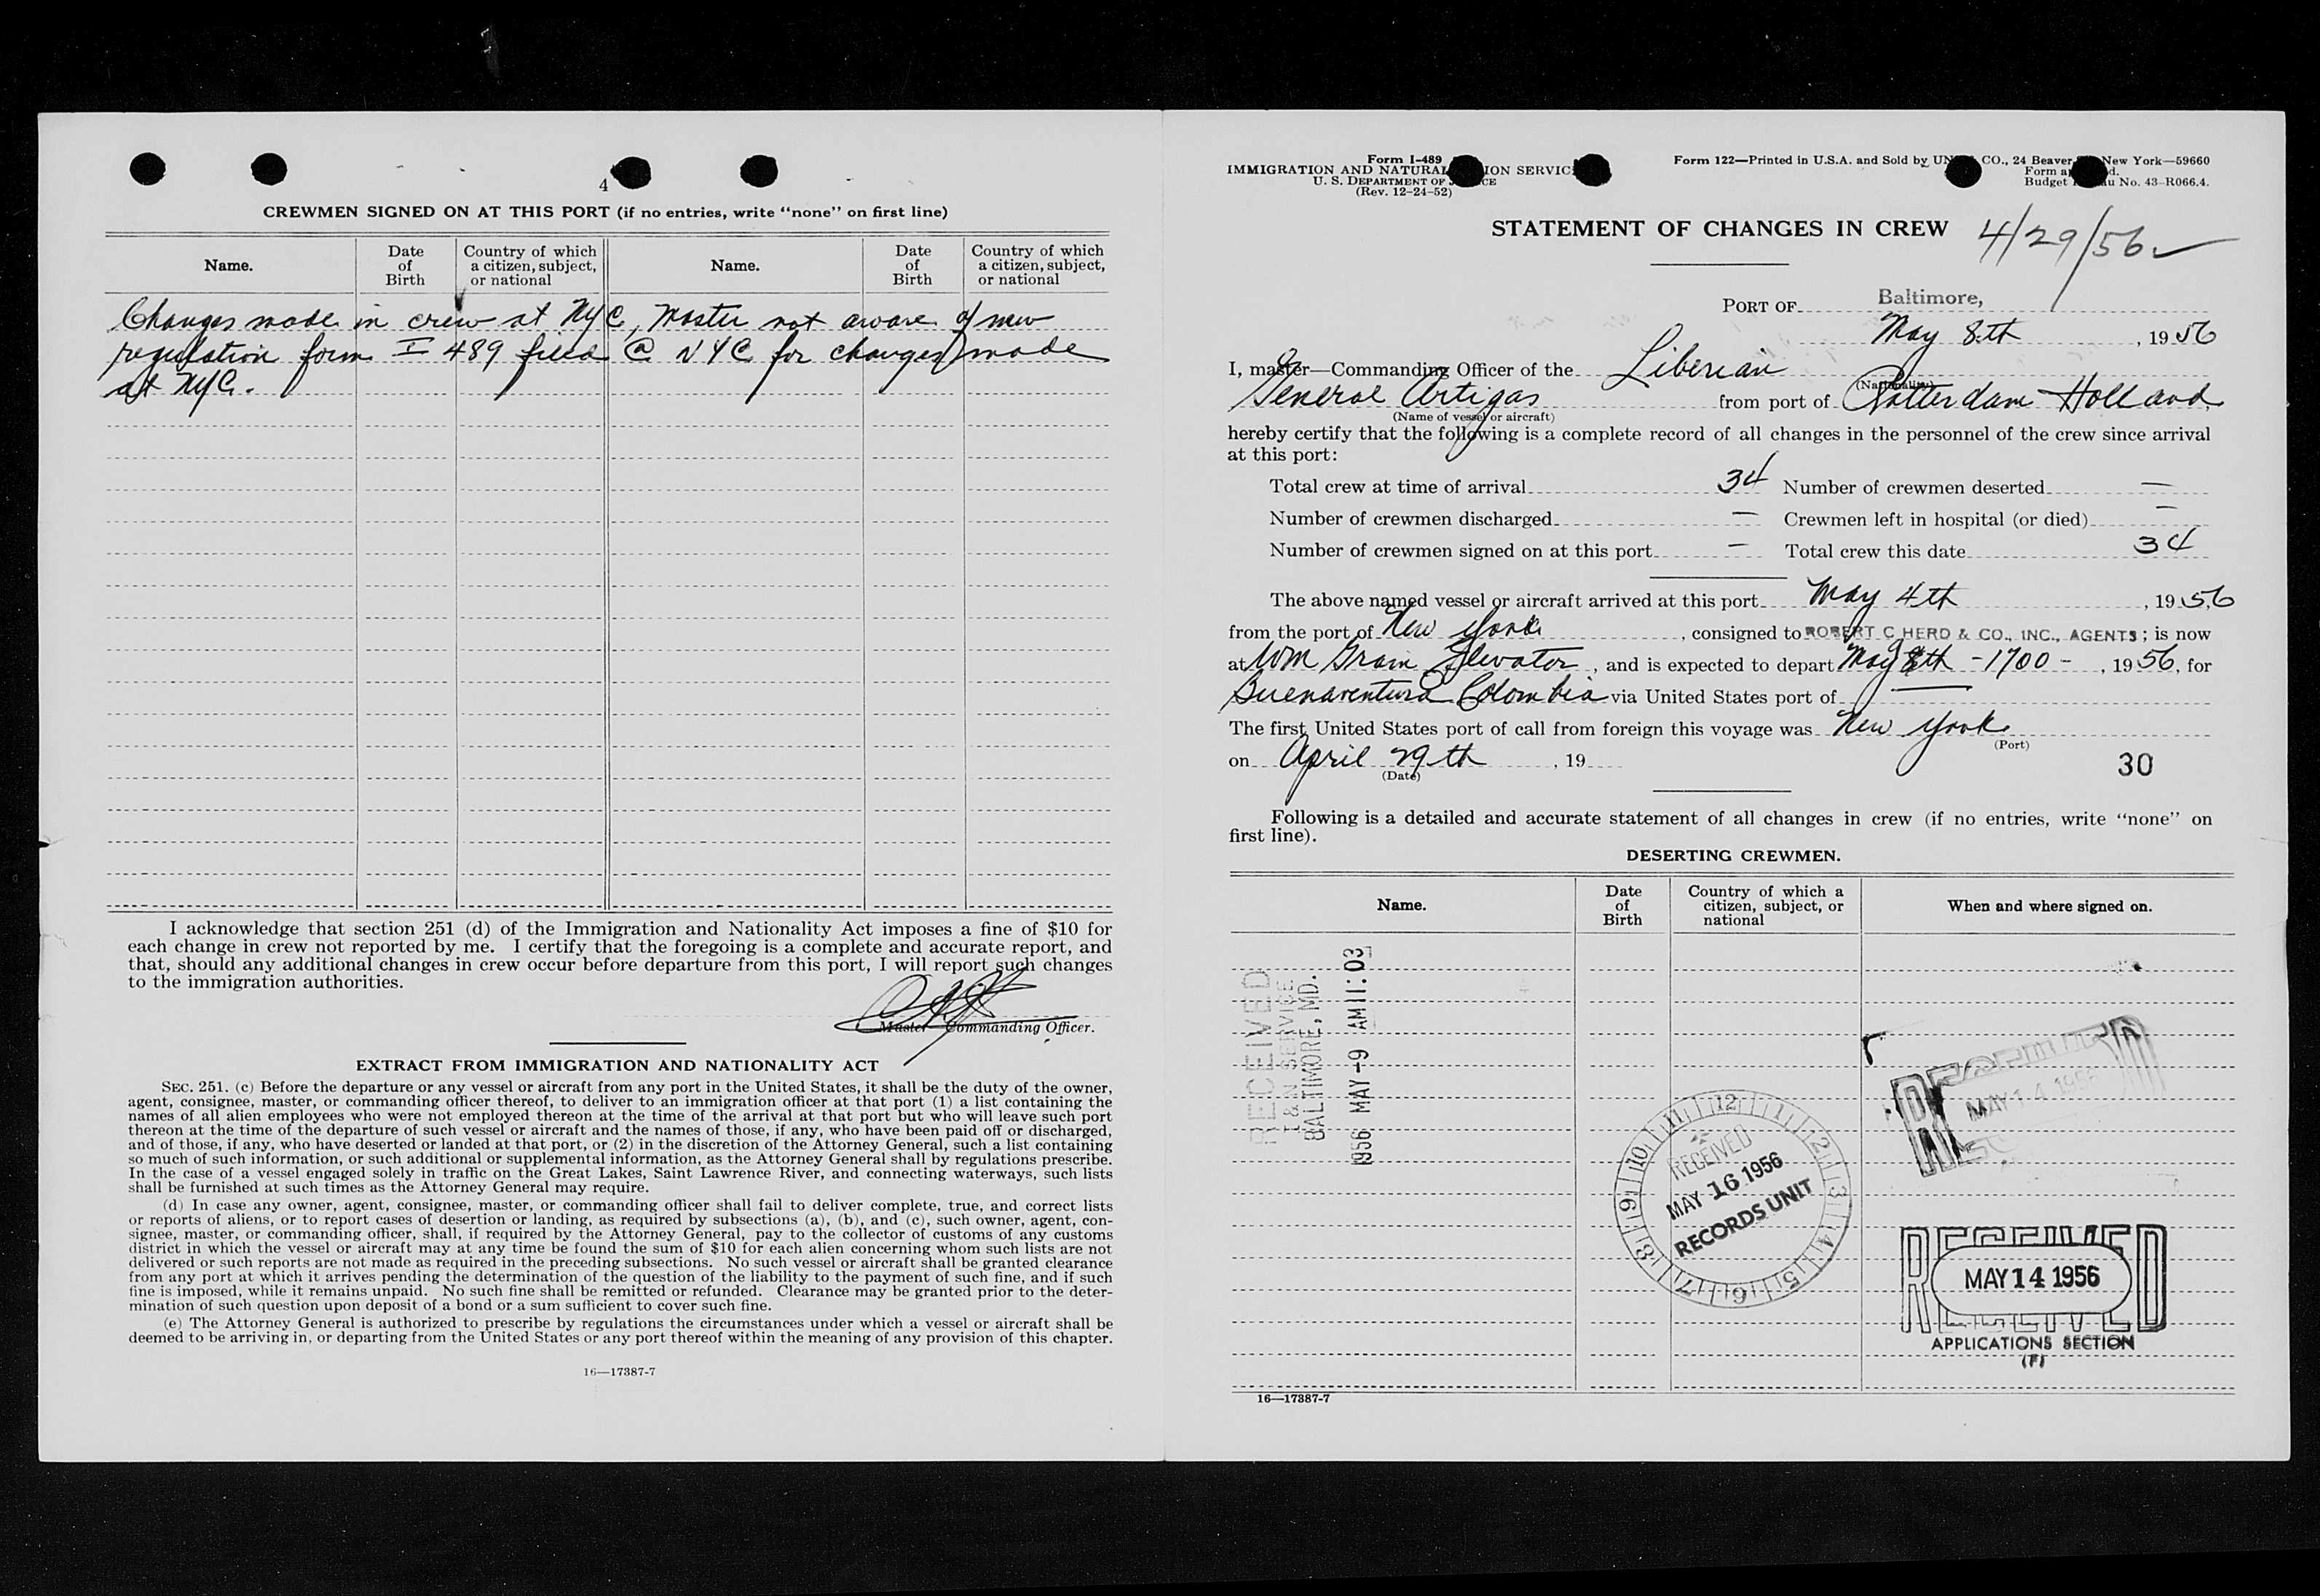 4
CREWMEN SIGNED ON AT THIS PORT (if no entries, write "none" on first line)
Name.
Date of Birth
Country of which a citizen, subject, or national
Name.
Date of Birth
Country of which a citizen, subject, or national
Changes made in crew at NYC, Master not aware of new
regulation form I 489 filed @ NYC for changes made
at NYC.
I acknowledge that section 251 (d) of the Immigration and Nationality Act imposes a fine of $10 for
each change in crew not reported by me. I certify that the foregoing is a complete and accurate report, and
that, should any additional changes in crew occur before departure from this port, I will report such changes
to the immigration authorities.
Master Commanding Officer.
EXTRACT FROM IMMIGRATION AND NATIONALITY ACT
SEC. 251. (c) Before the departure or any vessel or aircraft from any port in the United States, it shall be the duty of the owner,
agent, consignee, master, or commanding officer thereof, to deliver to an immigration officer at that port (1) a list containing the
names of all alien employees who were not employed thereon at the time of the arrival at that port but who will leave such port
thereon at the time of the departure of such vessel or aircraft and the names of those, if any, who have been paid off or discharged,
and of those, if any, who have deserted or landed at that port, or (2) in the discretion of the Attorney General, such a list containing
so much of such information, or such additional or supplemental information, as the Attorney General shall by regulations prescribe.
In the case of a vessel engaged solely in traffic on the Great Lakes, Saint Lawrence River, and connecting waterways, such lists
shall be furnished at such times as the Attorney General may require.
(d) In case any owner, agent, consignee, master, or commanding officer shall fail to deliver complete, true, and correct lists
or reports of aliens, or to report cases of desertion or landing, as required by subsections (a), (b), and (c), such owner, agent, con-
signee, master, or commanding officer, shall, if required by the Attorney General, pay to the collector of customs of any customs
district in which the vessel or aircraft may at any time be found the sum of $10 for each alien concerning whom such lists are not
delivered or such reports are not made as required in the preceding subsections. No such vessel or aircraft shall be granted clearance
from any port at which it arrives pending the determination of the question of the liability to the payment of such fine, and if such
fine is imposed, while it remains unpaid. No such fine shall be remitted or refunded. Clearance may be granted prior to the deter-
mination of such question upon deposit of a bond or a sum sufficient to cover such fine.
(e) The Attorney General is authorized to prescribe by regulations the circumstances under which a vessel or aircraft shall be
deemed to be arriving in, or departing from the United States or any port thereof within the meaning of any provision of this chapter.
16—17387-7
Form I-489
IMMIGRATION AND NATURAL ION SERVIC
U. S. DEPARTMENT OF CE
(Rev. 12-24-52)
Form 122—Printed in U.S.A. and Sold by UN CO., 24 Beaver New York—59660
Form a d.
Budget u No. 43-R066.4.
STATEMENT OF CHANGES IN CREW 4/29/56
PORT OF Baltimore,
May 8th, 1956
I, master—Commanding Officer of the Liberian
(Nationality)
General Artigas from port of Rotterdam Holland,
(Name of vessel or aircraft)
hereby certify that the following is a complete record of all changes in the personnel of the crew since arrival
at this port:
Total crew at time of arrival 34 Number of crewmen deserted —
Number of crewmen discharged — Crewmen left in hospital (or died) —
Number of crewmen signed on at this port — Total crew this date 34
The above named vessel or aircraft arrived at this port May 4th, 1956
from the port of New York, consigned to ROBERT C HERD & CO., INC., AGENTS; is now
at WM Grain Elevator, and is expected to depart May 8th -1700-, 1956, for
Buenaventura Colombia via United States port of —
The first United States port of call from foreign this voyage was New York
(Port)
on April 29th, 19
(Date)
30
Following is a detailed and accurate statement of all changes in crew (if no entries, write "none" on
first line).
DESERTING CREWMEN.
Name.
Date of Birth
Country of which a citizen, subject, or national
When and where signed on.
RECEIVED
I & N SERVICE
BALTIMORE, MD.
1956 MAY -9 AM 11:03
12 1 2 3 4 5 6 7 8 9 10 11
RECEIVED
MAY 16 1956
RECORDS UNIT
RECEIVED
MAY 14 1956
RECEIVED
MAY 14 1956
APPLICATIONS SECTION
(F)
16—17387-7